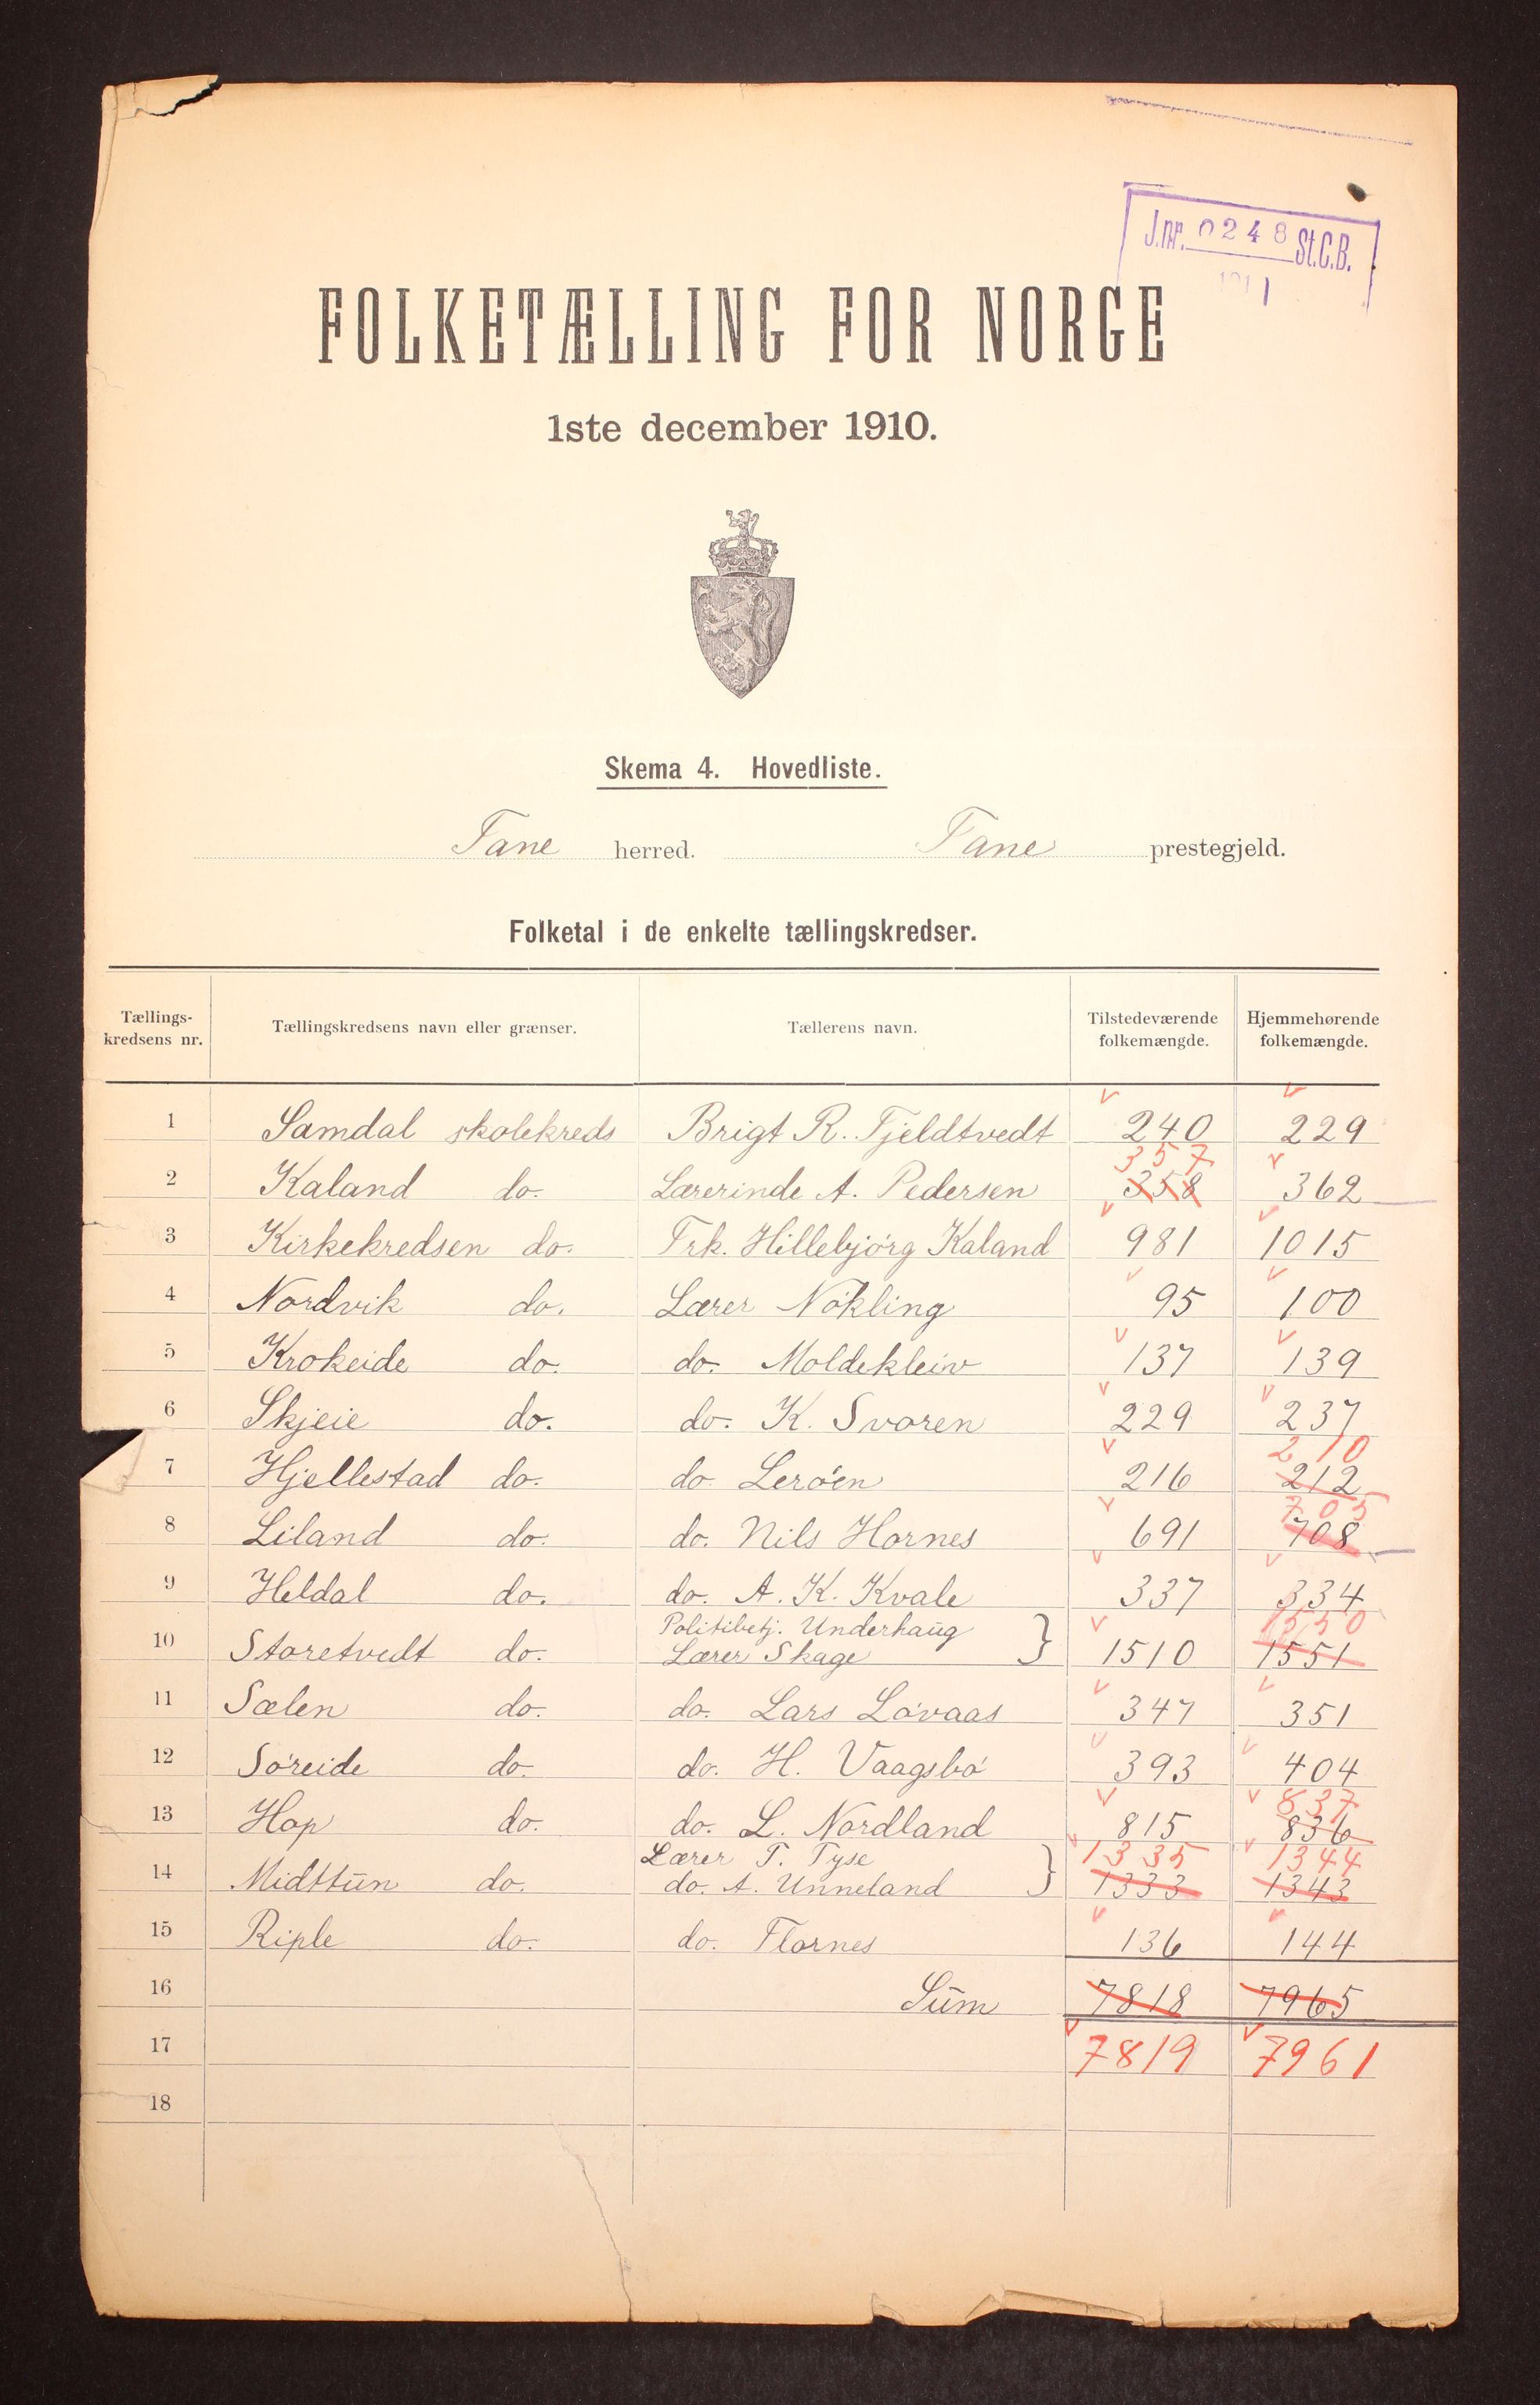 J.nr. 0248 St.C.B.
1911
FOLKETÆLLING FOR NORGE
1ste december 1910.
Skema 4. Hovedliste.
Fane herred. Fane prestegjeld.
Folketal i de enkelte tællingskredser.
Tællings-kredsens nr. Tællingskredsens navn eller grænser. Tællerens navn. Tilstedeværende folkemængde. Hjemmehørende folkemængde.
1 Samdal skolekreds Brigt R. Fjeldtvedt 240 229
357
2 Kaland do. Lærerinde A. Pedersen 358 362
3 Kirkekredsen do. Frk. Hillebjørg Kaland 981 1015
4 Nordvik do. Lærer Nøkling 95 100
5 Krokeide do. do. Moldekleiv 137 139
6 Skjeie do. do. K. Svoren 229 237
210
7 Hjellestad do. do Lerøen 216 212
705
8 Liland do. do. Nils Hornes 691 708
9 Heldal do. do. A. K. Kvale 337 334
Politibetj. Underhaug 1550
10 Storetvedt do. Lærer Skage 1510 1551
11 Sælen do. do. Lars Løvaas 347 351
12 Søreide do. do. H. Vaagsbø 393 404
837
13 Hop do. do. L. Nordland 815 836
Lærer T. Tyse 1335 1344
14 Midttun do. do. A. Unneland 1333 1343
15 Riple do. do. Flornes 136 144
16 Sum 7818 7965
17 7819 7961
18